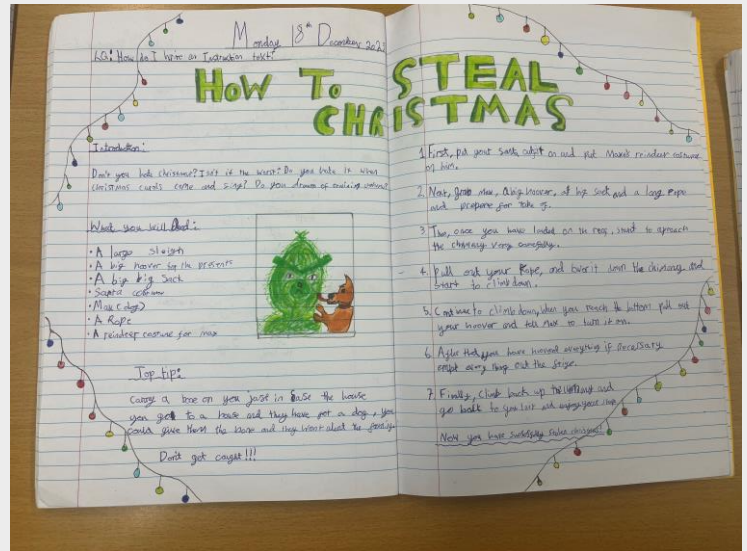 Monday 18th December 202
LO: How do I write an Instruction text?
HOW TO STEAL
CHRISTMAS
Introduction:
Don't you hate christmas? Isn't it the worst? Do you hate it when
christmas carols come and sing? Do you dream of ruining
What you will need:
• A large sleigh
• A big hoover for the presents
• A big big sack
• Santa costume
• Max (dog)
• A Rope
• A reindeer costume for max
Top tip:
Carry a bone on you just in case the house
you got to a house and they have got a dog, you
could give them the bone and they about the
Don't get caught!!!
1. First, put your santa outfit on and put Max's reindeer costume
on him.
2. Next, grab Max, a big hoover, a big sack and a long rope
and prepare for take of.
3. Then, once you have landed on the roof, start to aproach
the chimney very carefully.
4. Pull out your Rope, and lower it down the chimney and
start to climb down.
5. Continue to climb down, when you reach the bottom pull out
your hoover and tell Max to turn it on.
6. After that, you have hoovered everything if necessary
every thing out the
7. Finally, climb back up the and
go back to your and enjoy your
Now you have stolen christmas!